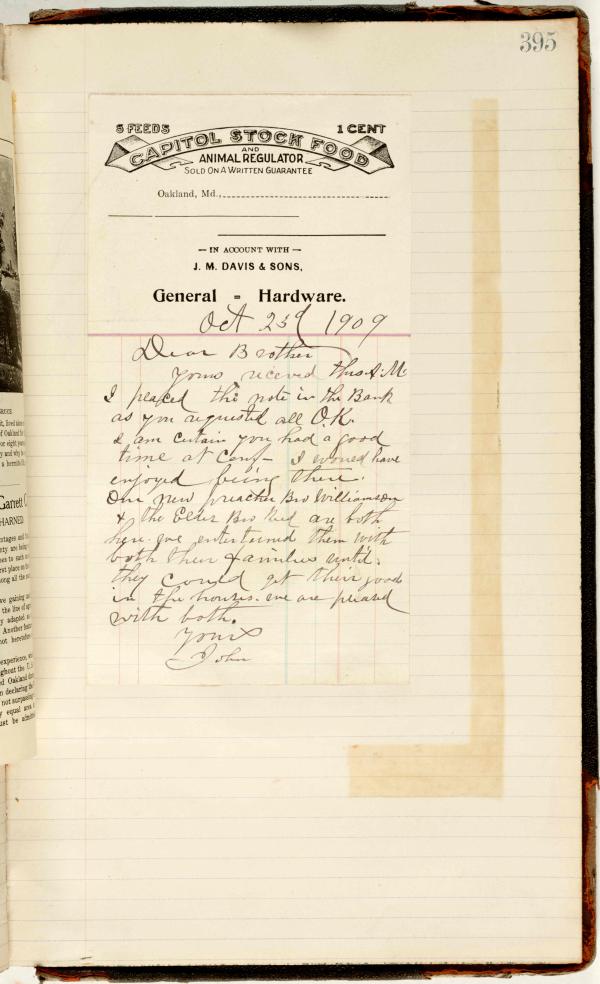 395
5 FEEDS 1 CENT
CAPITOL STOCK FOOD
AND
ANIMAL REGULATOR
SOLD ON A WRITTEN GUARANTEE
Oakland, Md.,
— IN ACCOUNT WITH —
J. M. DAVIS & SONS,
General = Hardware.
Oct 23d 1909
Dear Brother
Yours received this A.M.
I placed the note in the Bank
as you requested all O.K.
I am certain you had a good
time at Conf- I would have
enjoyed being there.
Our new preacher Bro Williamson
& the Elder Bro Reed are both
here. we entertained them with
both their families until
they could get their goods
in the houses. we are pleased
with both.
Yours
John
Garrett
HARNED